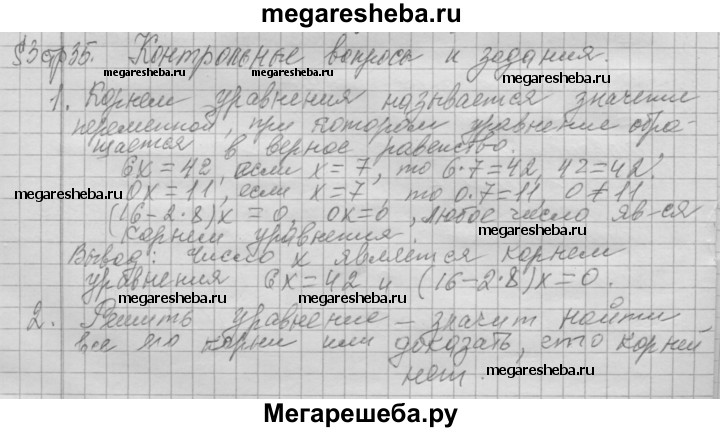 megaresheba.ru
§3 стр35. Контрольные вопросы и задания.
megaresheba.ru megaresheba.ru megaresheba.ru
1. Корнем уравнения называется значение
переменной, при котором уравнение обра-
щается в верное равенство.
6x=42, если x=7, то 6·7=42, 42=42.
megaresheba.ru megaresheba.ru megaresheba.ru
0x=11, если x=7, то 0·7=11, 0≠11.
(16-2·8)x=0, 0x=0, любое число яв-ся
корнем уравнения. megaresheba.ru
Вывод: число x является корнем
уравнения 6x=42 и (16-2·8)x=0.
megaresheba.ru megaresheba.ru
2. Решить уравнение - значит найти
все его корни или доказать, что корней
нет. megaresheba.ru
Мегарешеба.ру